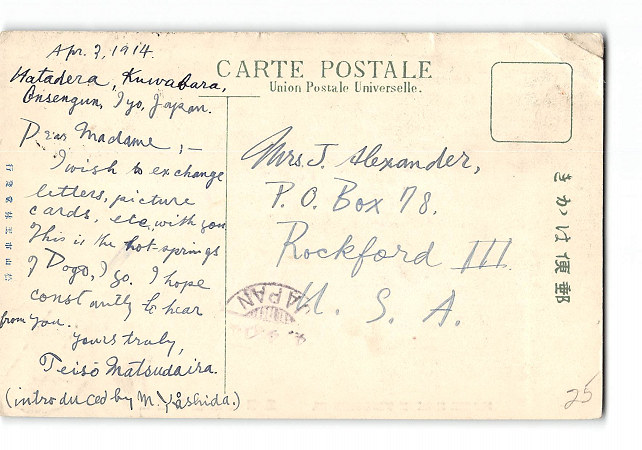 Apr. 7, 1914.
Hatadera, Kuwabara,
Onsengun, Iyo, Japan.
Dear Madame; —
I wish to exchange
letters, picture
cards, etc, with you
This is the hot-springs
of Dogo, Iyo. I hope
constantly to hear
from you.
Yours truly,
Teiso Matsudaira.
(introduced by M. Yoshida.)
CARTE POSTALE
Union Postale Universelle.
Mrs. J. Alexander,
P. O. Box 78.
Rockford Ill.
U. S. A.
JAPAN
きかは便郵
25